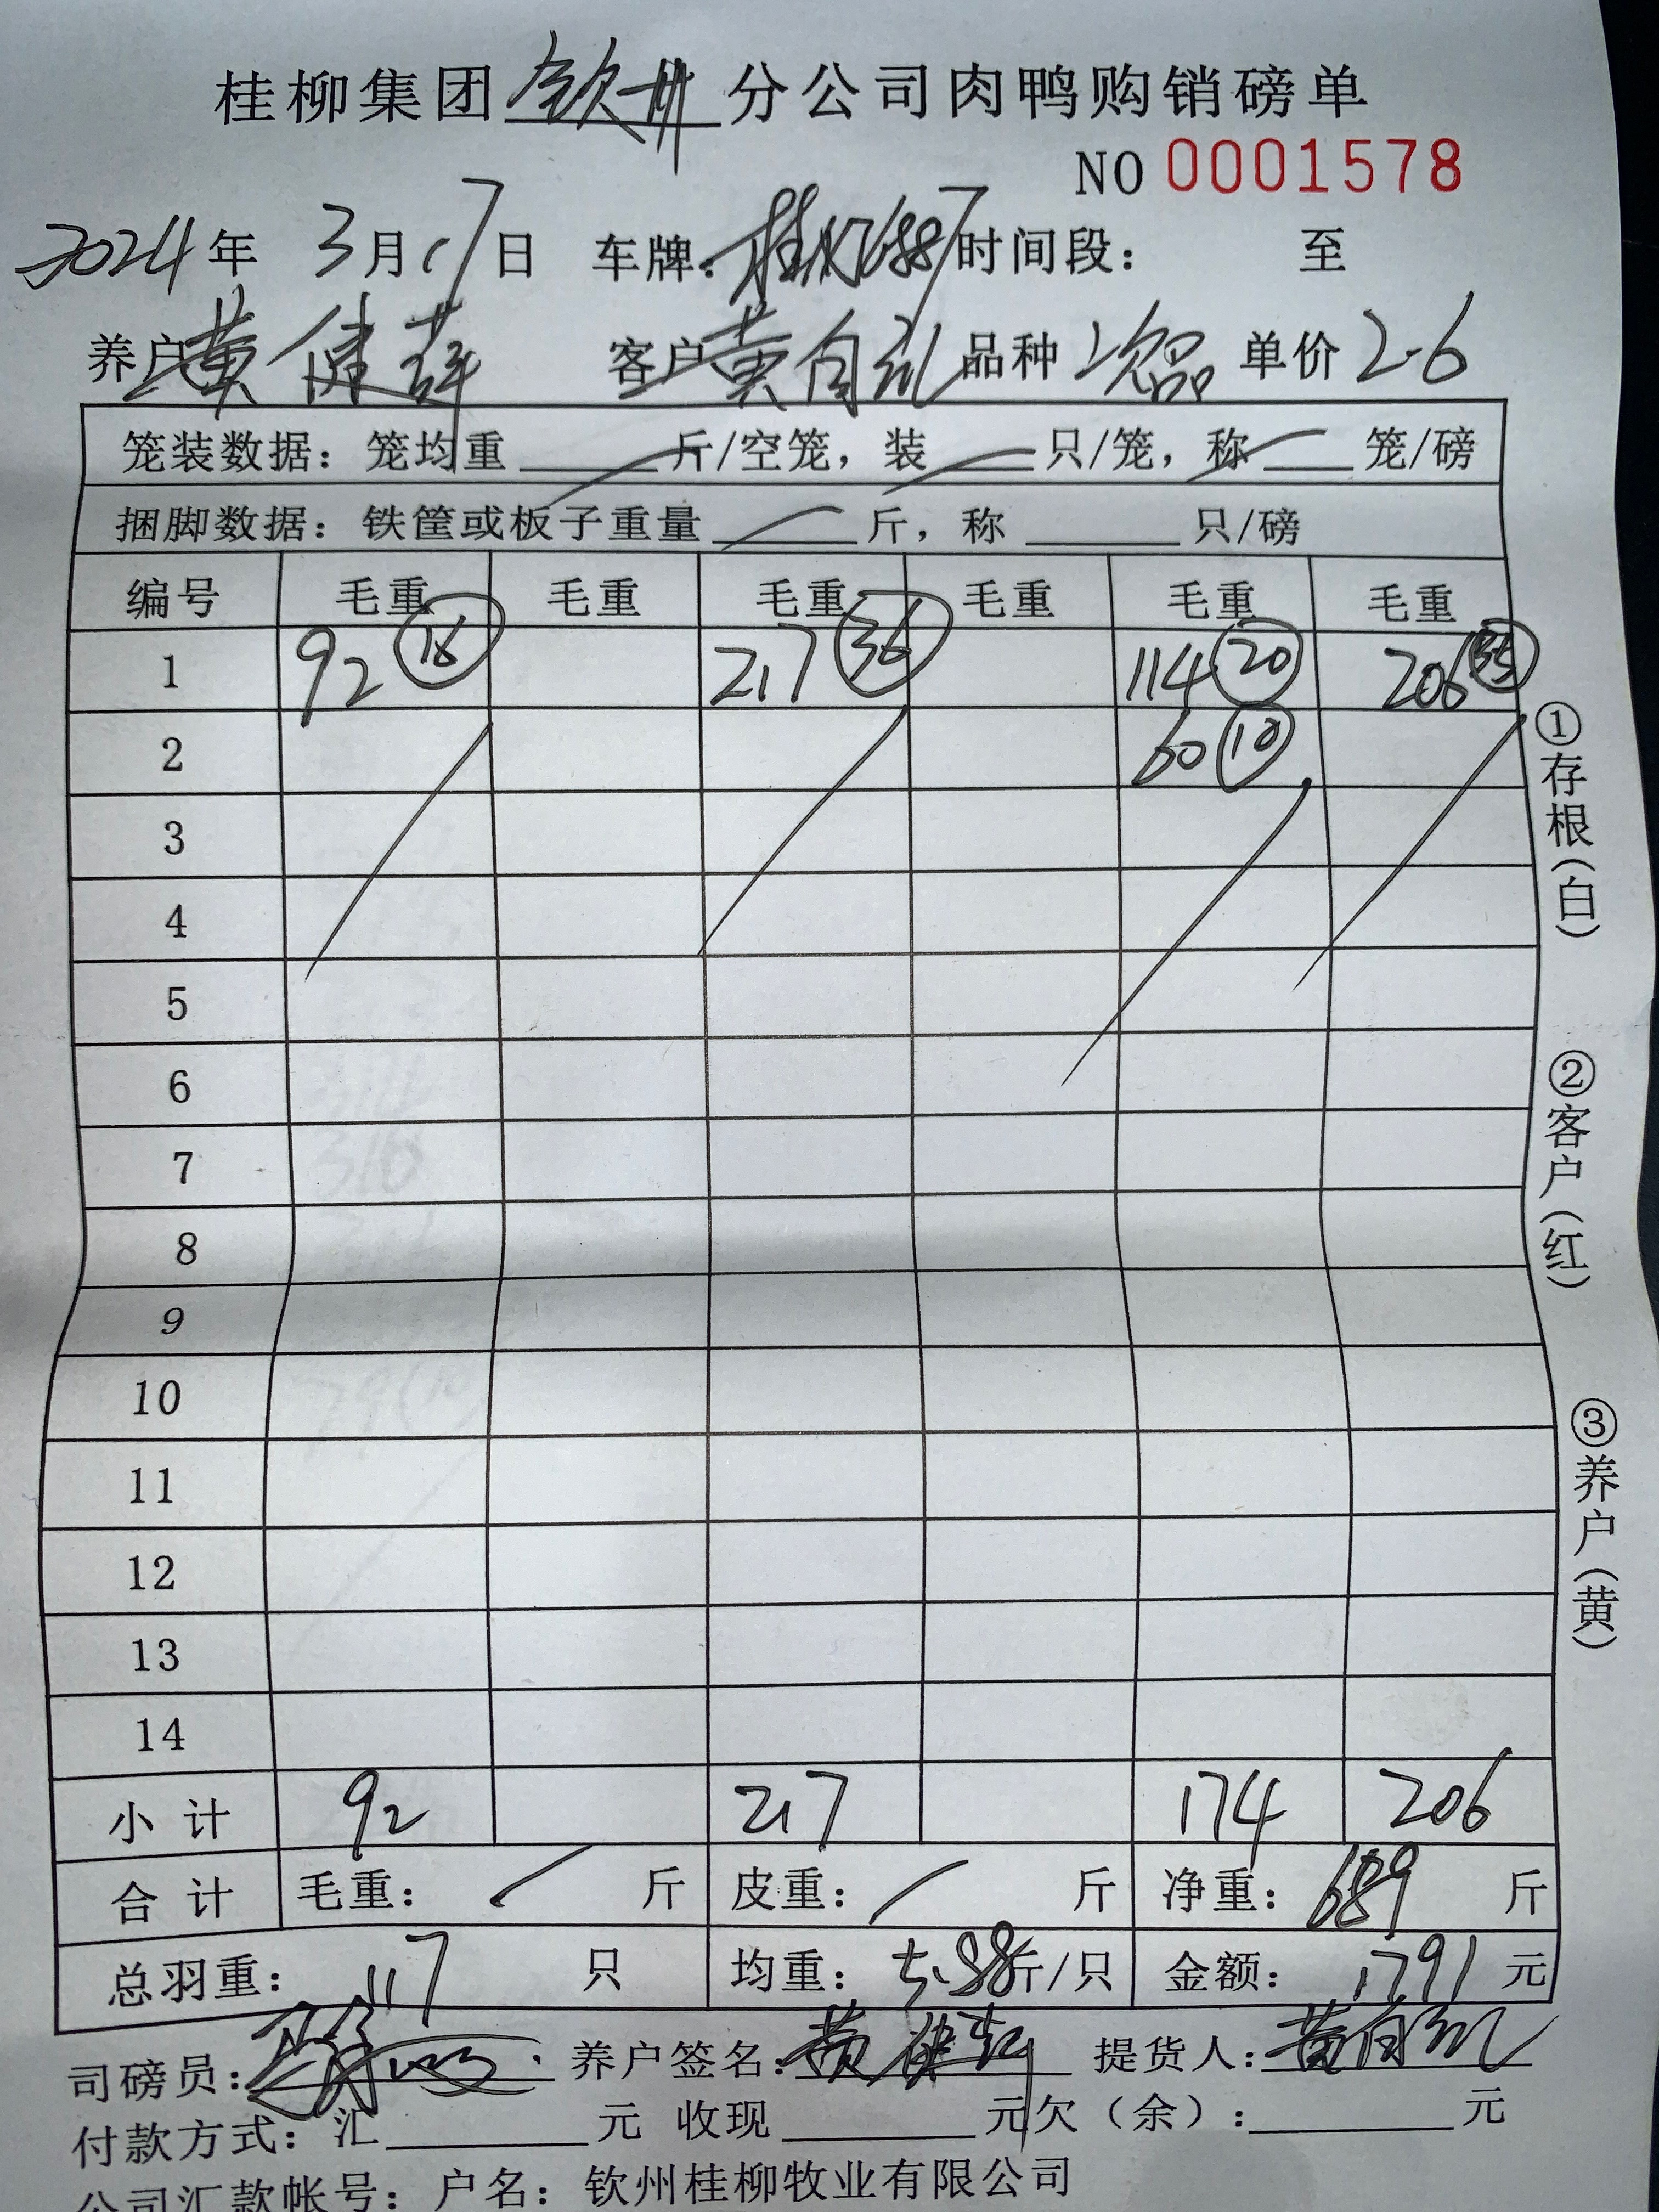 桂柳集团 钦州 分公司肉鸭购销磅单
NO 0001578
2024年 3月17日 车牌: 时间段: 至
养户 黄健 客户 黄自 品种 次品 单价 2.6
笼装数据: 笼均重 斤/空笼, 装 只/笼, 称 笼/磅
捆脚数据: 铁筐或板子重量 斤, 称 只/磅
编号 毛重 毛重 毛重 毛重 毛重 毛重
1 92 16 217 36 114 20 206 35
2 60 10
3
4
5
6
7
8
9
10
11
12
13
14
小计 92 217 174 206
合计 毛重: / 斤 皮重: / 斤 净重: 689 斤
总羽重: 117 只 均重: 5.88斤/只 金额: 1791 元
司磅员: 养户签名: 黄健 提货人: 黄自
付款方式: 汇 元 收现 元欠(余): 元
公司汇款帐号: 户名: 钦州桂柳牧业有限公司
①存根(白)
②客户(红)
③养户(黄)